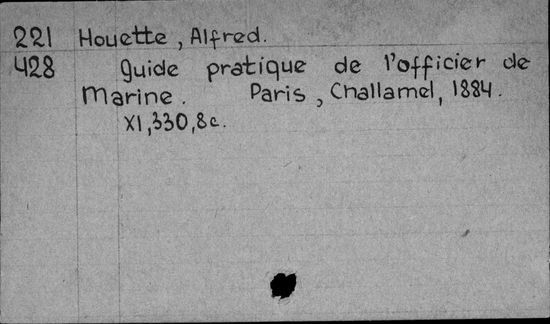 221 Houette, Alfred.
428 Guide pratique de l'officier de
Marine. Paris, Challamel, 1884.
XI, 330, 8c.